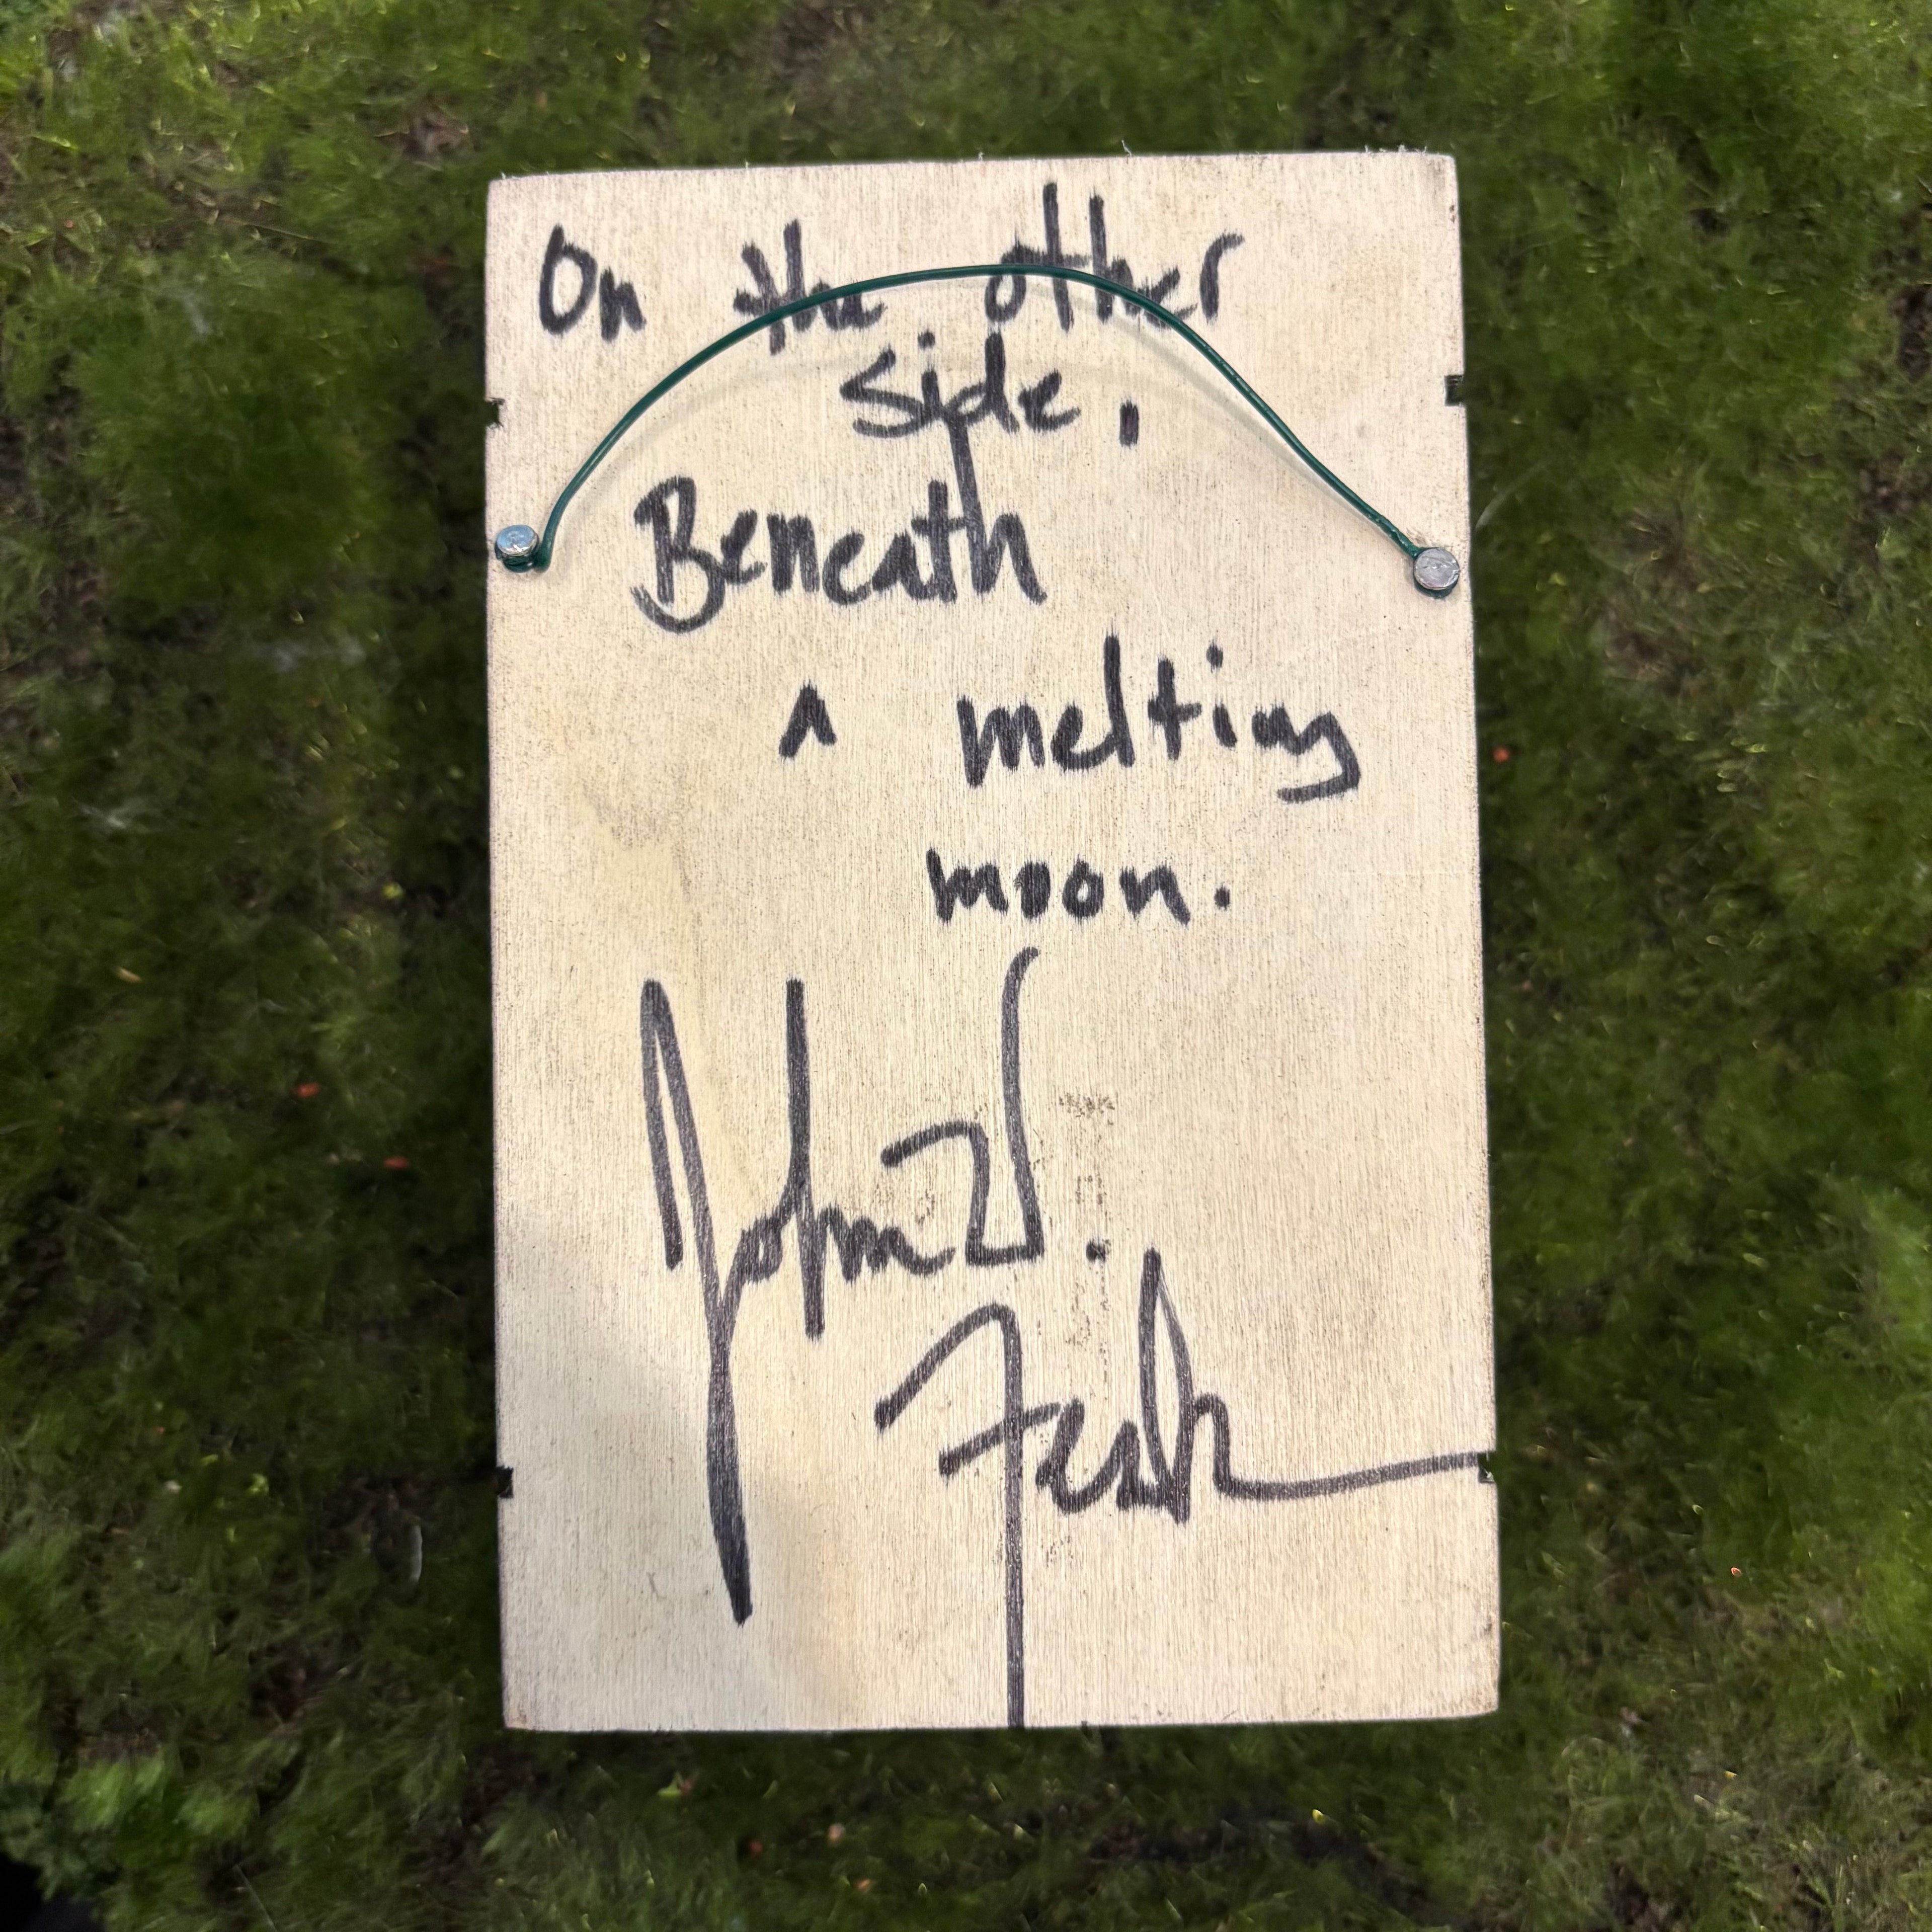 On the other
side,
Beneath
A melting
moon.
John W.
Fesk